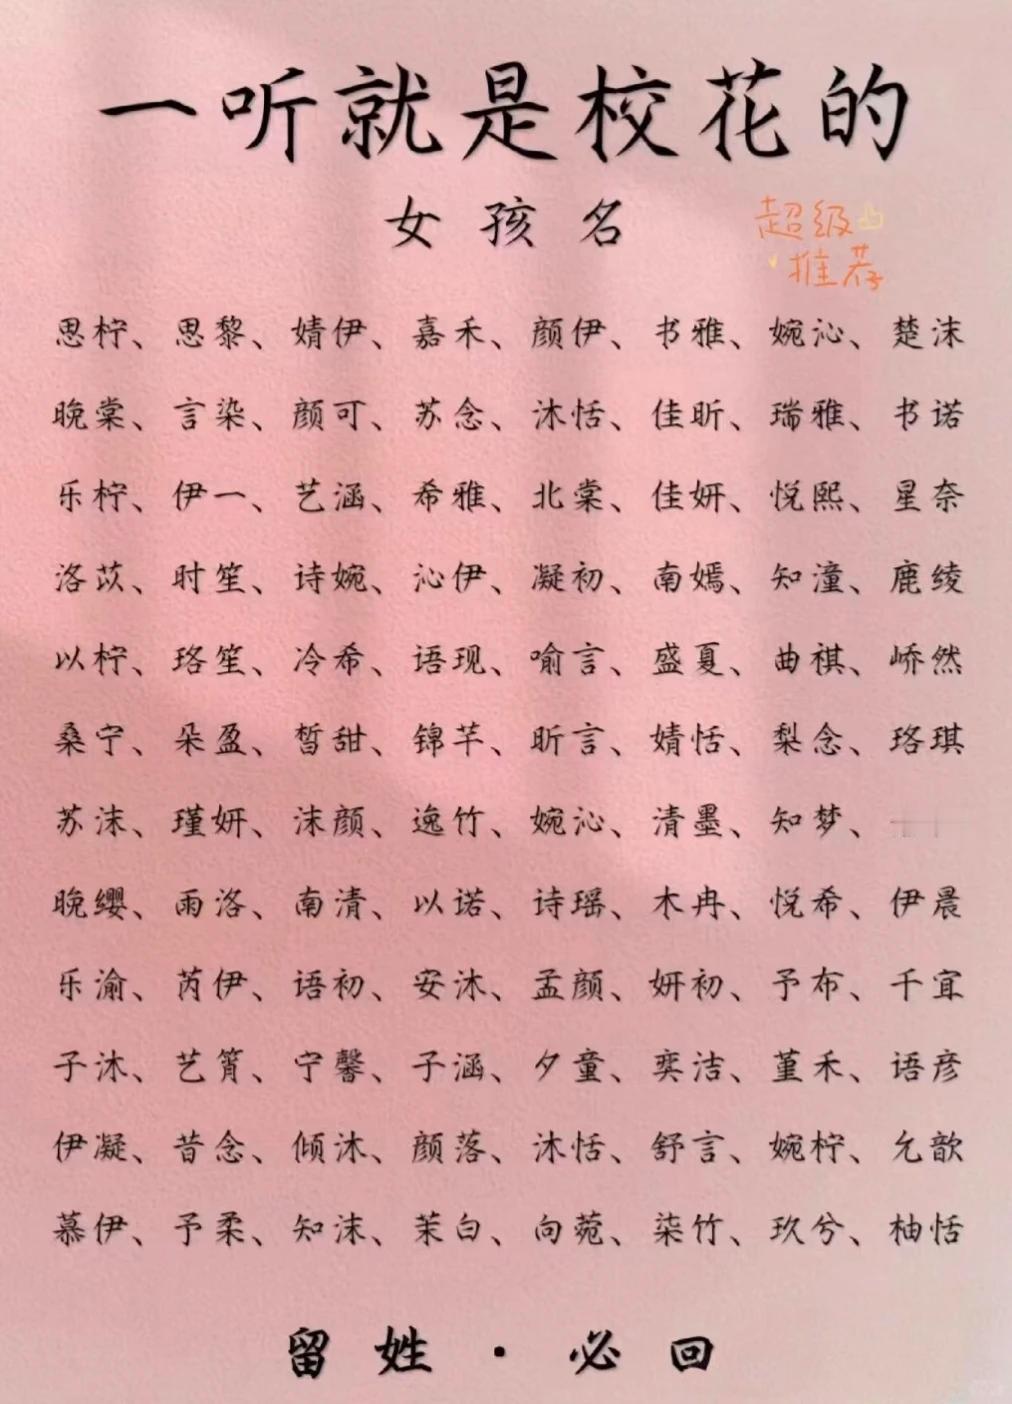 一听就是校花的
女孩名
超级
推荐
思柠、思黎、婧伊、嘉禾、颜伊、书雅、婉沁、楚沫
晚棠、言染、颜可、苏念、沐恬、佳昕、瑞雅、书诺
乐柠、伊一、艺涵、希雅、北棠、佳妍、悦熙、星奈
洛苡、时笙、诗婉、沁伊、凝初、南嫣、知潼、鹿绫
以柠、珞笙、冷希、语现、喻言、盛夏、曲祺、峤然
桑宁、朵盈、皙甜、锦芊、昕言、婧恬、梨念、珞琪
苏沫、瑾妍、沫颜、逸竹、婉沁、清墨、知梦、
晚缨、雨洛、南清、以诺、诗瑶、木冉、悦希、伊晨
乐渝、芮伊、语初、安沐、孟颜、妍初、予布、千宜
子沐、艺筲、宁馨、子涵、夕童、奕洁、堇禾、语彦
伊凝、昔念、倾沐、颜落、沐恬、舒言、婉柠、允歆
慕伊、予柔、知沫、茉白、向菀、柒竹、玖兮、柚恬
留姓·必回